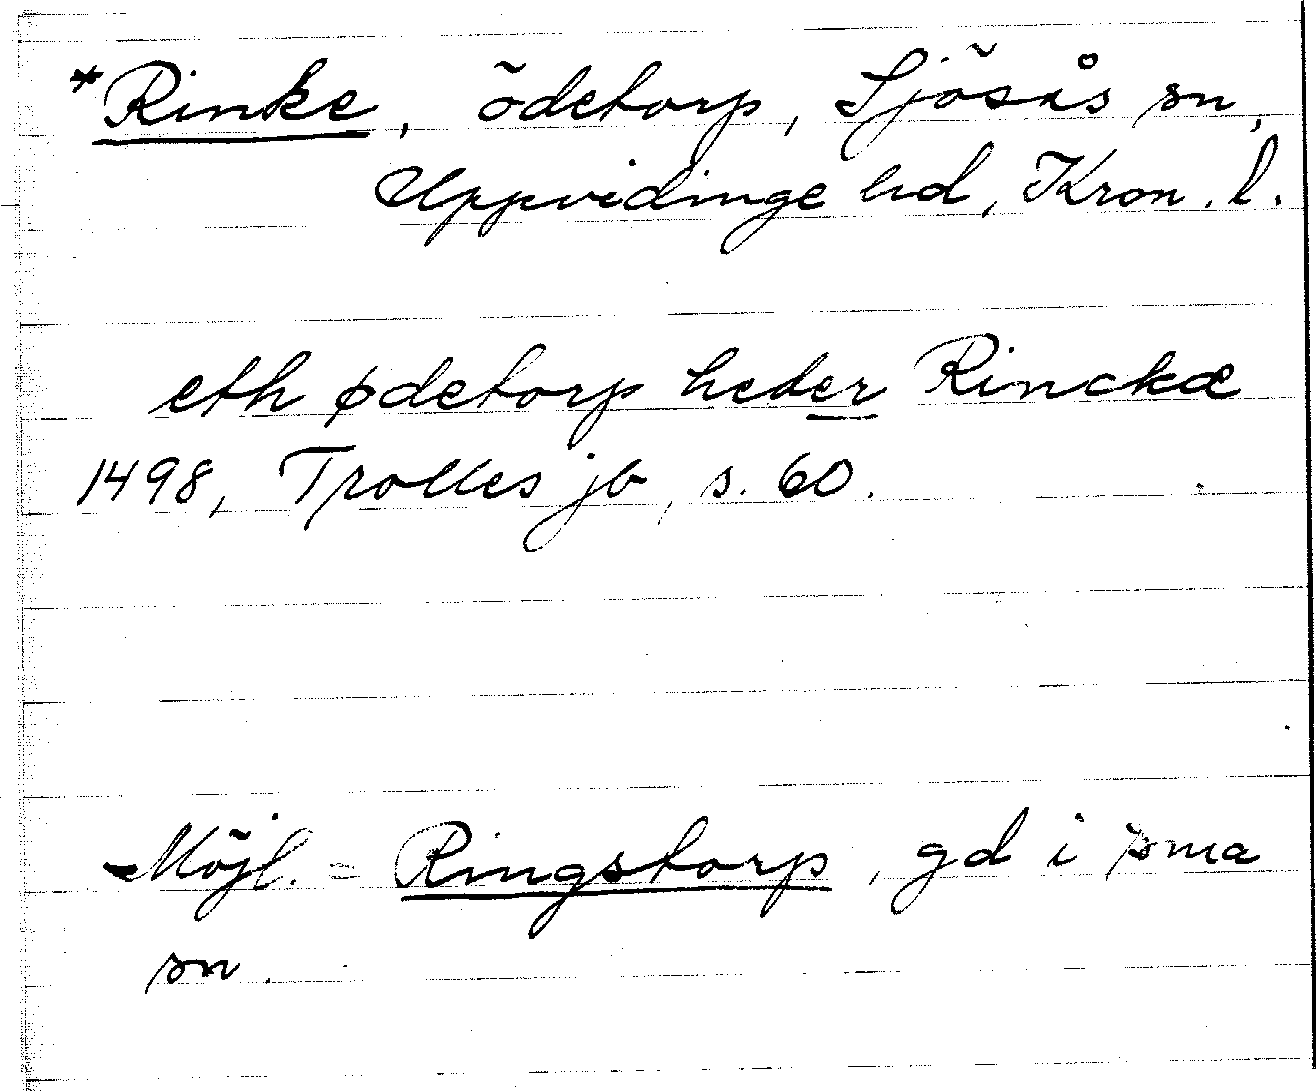 *Rinke, ödetorp, Sjösås sn,
Uppvidinge hd, Kron. l.
eth ødetorp heder Rinckæ
1498, Trolles jb, s. 60.
Möjl. = Ringstorp, gd i sma
sn.